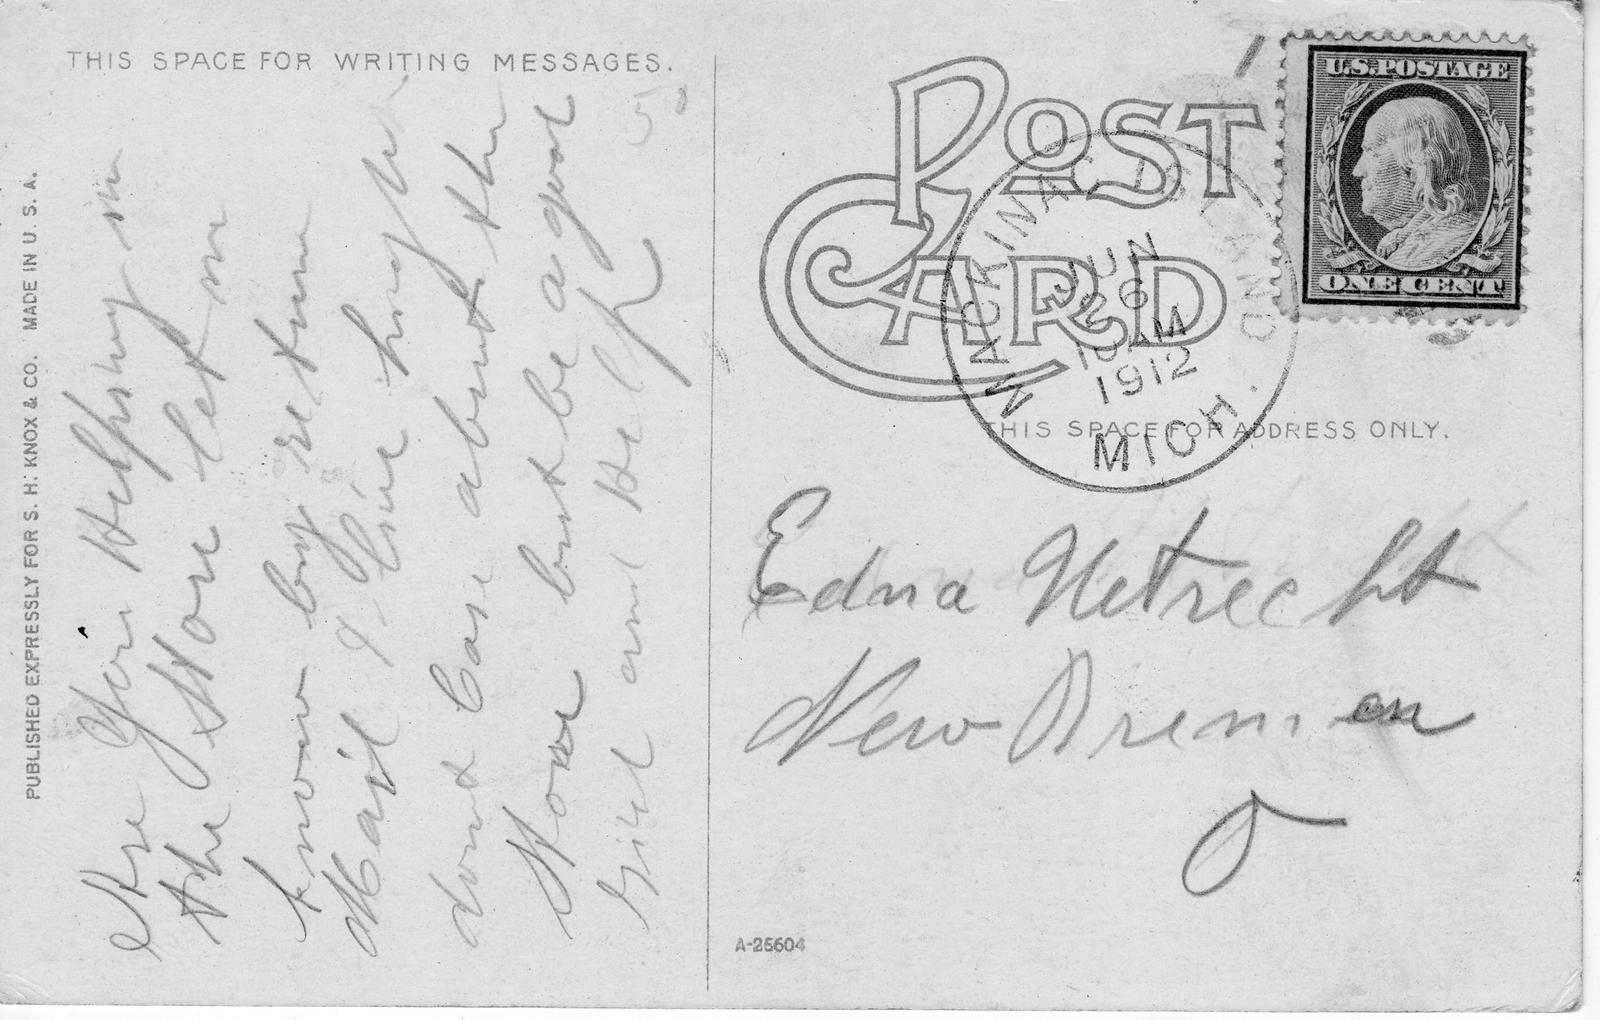 THIS SPACE FOR WRITING MESSAGES.
PUBLISHED EXPRESSLY FOR S. H. KNOX & CO. MADE IN U. S. A.
Are you Helping in
the Store let m
know by return
Mail I
dont Care about the
Store but be a good
Girl and Help
POST
CARD
MACKINAC ISLAND
JUN
26
10 AM
1912
MICH.
U.S. POSTAGE
ONE CENT
THIS SPACE FOR ADDRESS ONLY.
Edna
New Bremen
O
A-25604